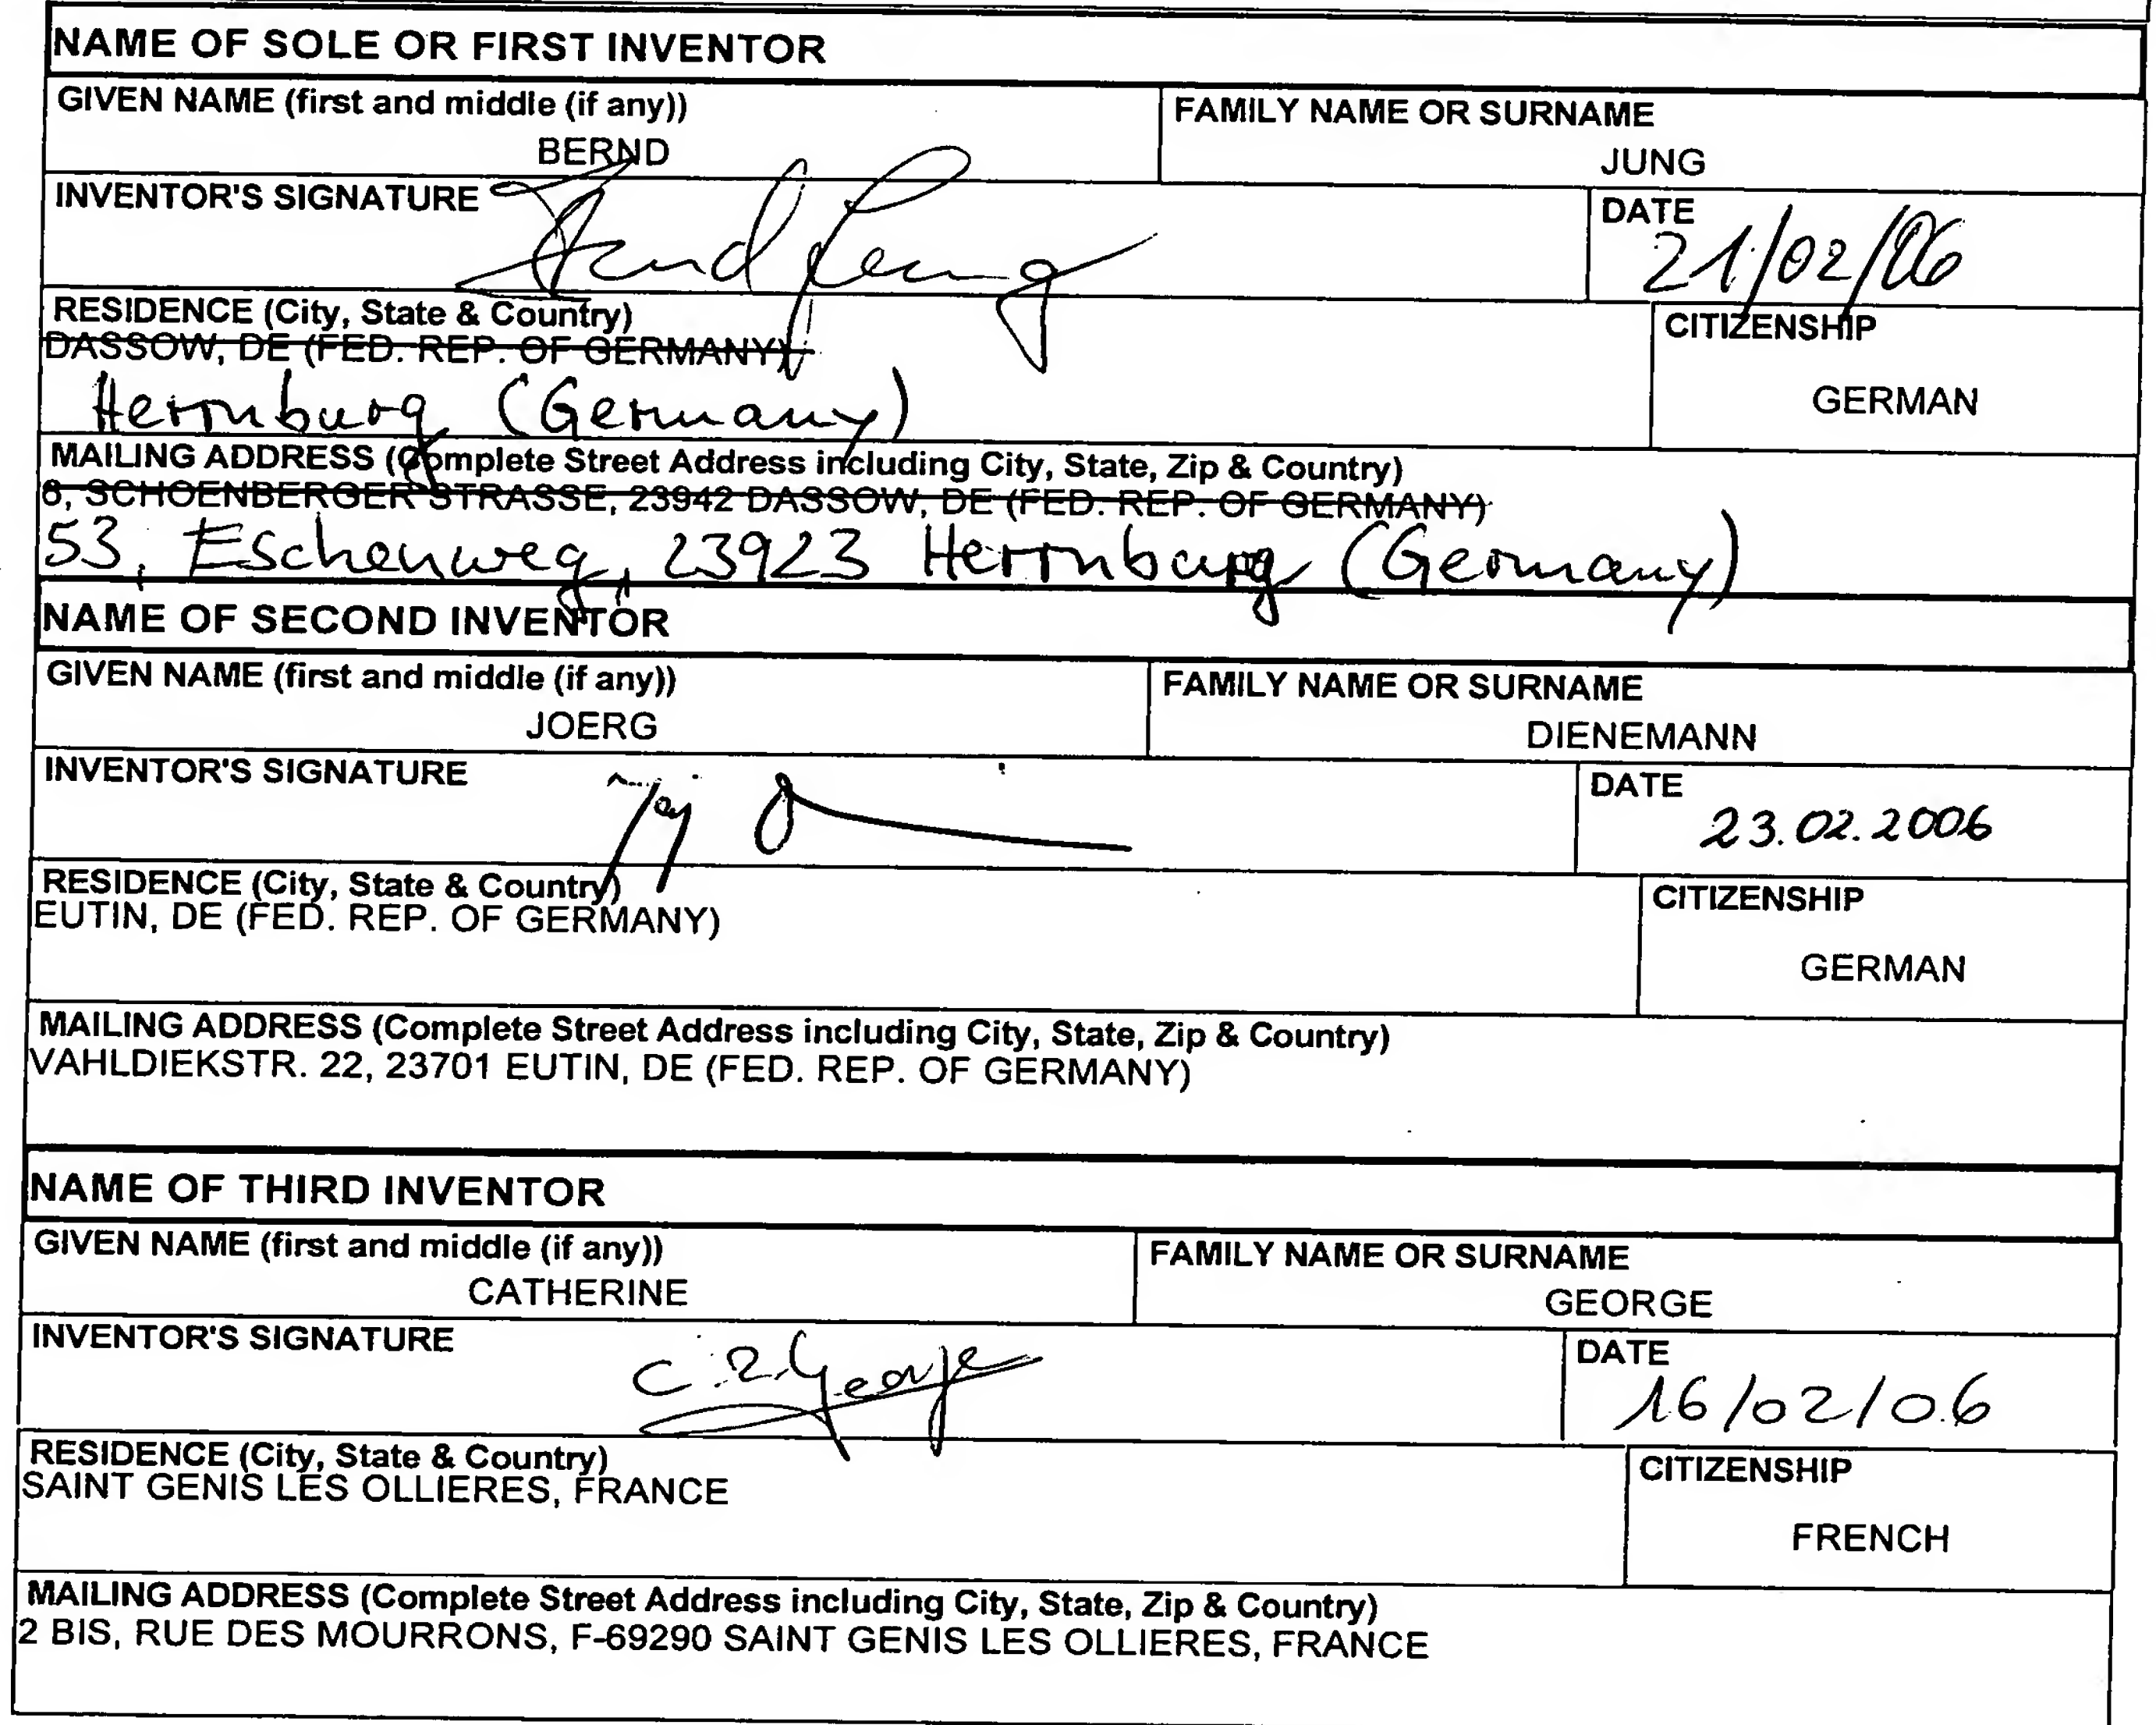 NAME OF SOLE OR FIRST INVENTOR
GIVEN NAME (first and middle (if any))
BERND
FAMILY NAME OR SURNAME
JUNG
INVENTOR'S SIGNATURE
DATE
21/02/06
RESIDENCE (City, State & Country)
DASSOW, DE (FED. REP. OF GERMANY)
Herrnburg (Germany)
CITIZENSHIP
GERMAN
MAILING ADDRESS (Complete Street Address including City, State, Zip & Country)
8, SCHOENBERGER STRASSE, 23942 DASSOW, DE (FED. REP. OF GERMANY)
53, Eschenweg, 23923 Herrnburg (Germany)
NAME OF SECOND INVENTOR
GIVEN NAME (first and middle (if any))
JOERG
FAMILY NAME OR SURNAME
DIENEMANN
INVENTOR'S SIGNATURE
DATE
23.02.2006
RESIDENCE (City, State & Country)
EUTIN, DE (FED. REP. OF GERMANY)
CITIZENSHIP
GERMAN
MAILING ADDRESS (Complete Street Address including City, State, Zip & Country)
VAHLDIEKSTR. 22, 23701 EUTIN, DE (FED. REP. OF GERMANY)
NAME OF THIRD INVENTOR
GIVEN NAME (first and middle (if any))
CATHERINE
FAMILY NAME OR SURNAME
GEORGE
INVENTOR'S SIGNATURE
DATE
16/02/06
RESIDENCE (City, State & Country)
SAINT GENIS LES OLLIERES, FRANCE
CITIZENSHIP
FRENCH
MAILING ADDRESS (Complete Street Address including City, State, Zip & Country)
2 BIS, RUE DES MOURRONS, F-69290 SAINT GENIS LES OLLIERES, FRANCE